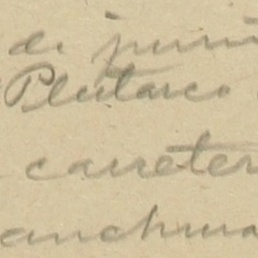 de juni
Plutarco
carreter
anchura